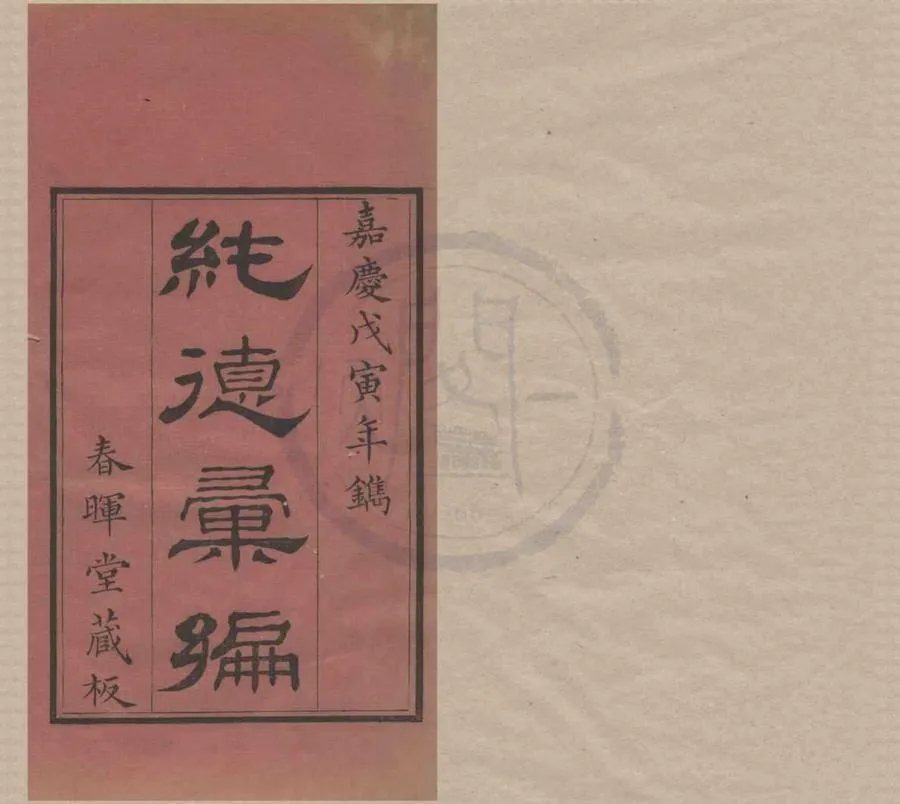 嘉慶戊寅年鐫
純德彙編
春暉堂藏板